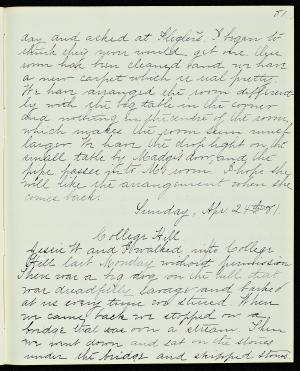 51.
day and asked at Slegler's. I began to
think they never would get one. Our
room has been cleaned and we have
a new carpet which is real pretty.
We have arranged the room different-
ly with the big table in the corner
and nothing in the centre of the room,
which makes the room seem much
larger. We have the drop light on the
small table by Madge's door, and the
pipe passes into M's room. I hope she
will like the arrangement when she
comes back.
Sunday, Apr. 24th
College Hill
Jessie W. and I walked into College
Hill last Monday without permission.
There was a big dog on the hill that
was dreadfully savage and barked
at us every time we stirred. When
we came back we stopped on a
bridge that was over a stream. Then
we went down and sat on the stones
under the bridge and skipped stones